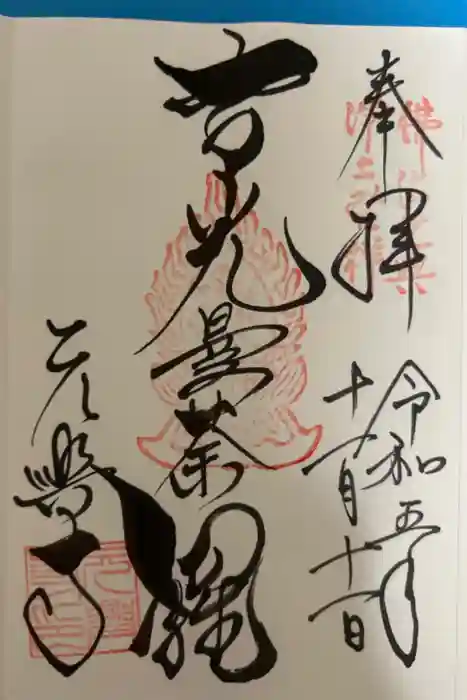 奉拝
令和五年
十一月十一日
智光曼荼羅
元興寺